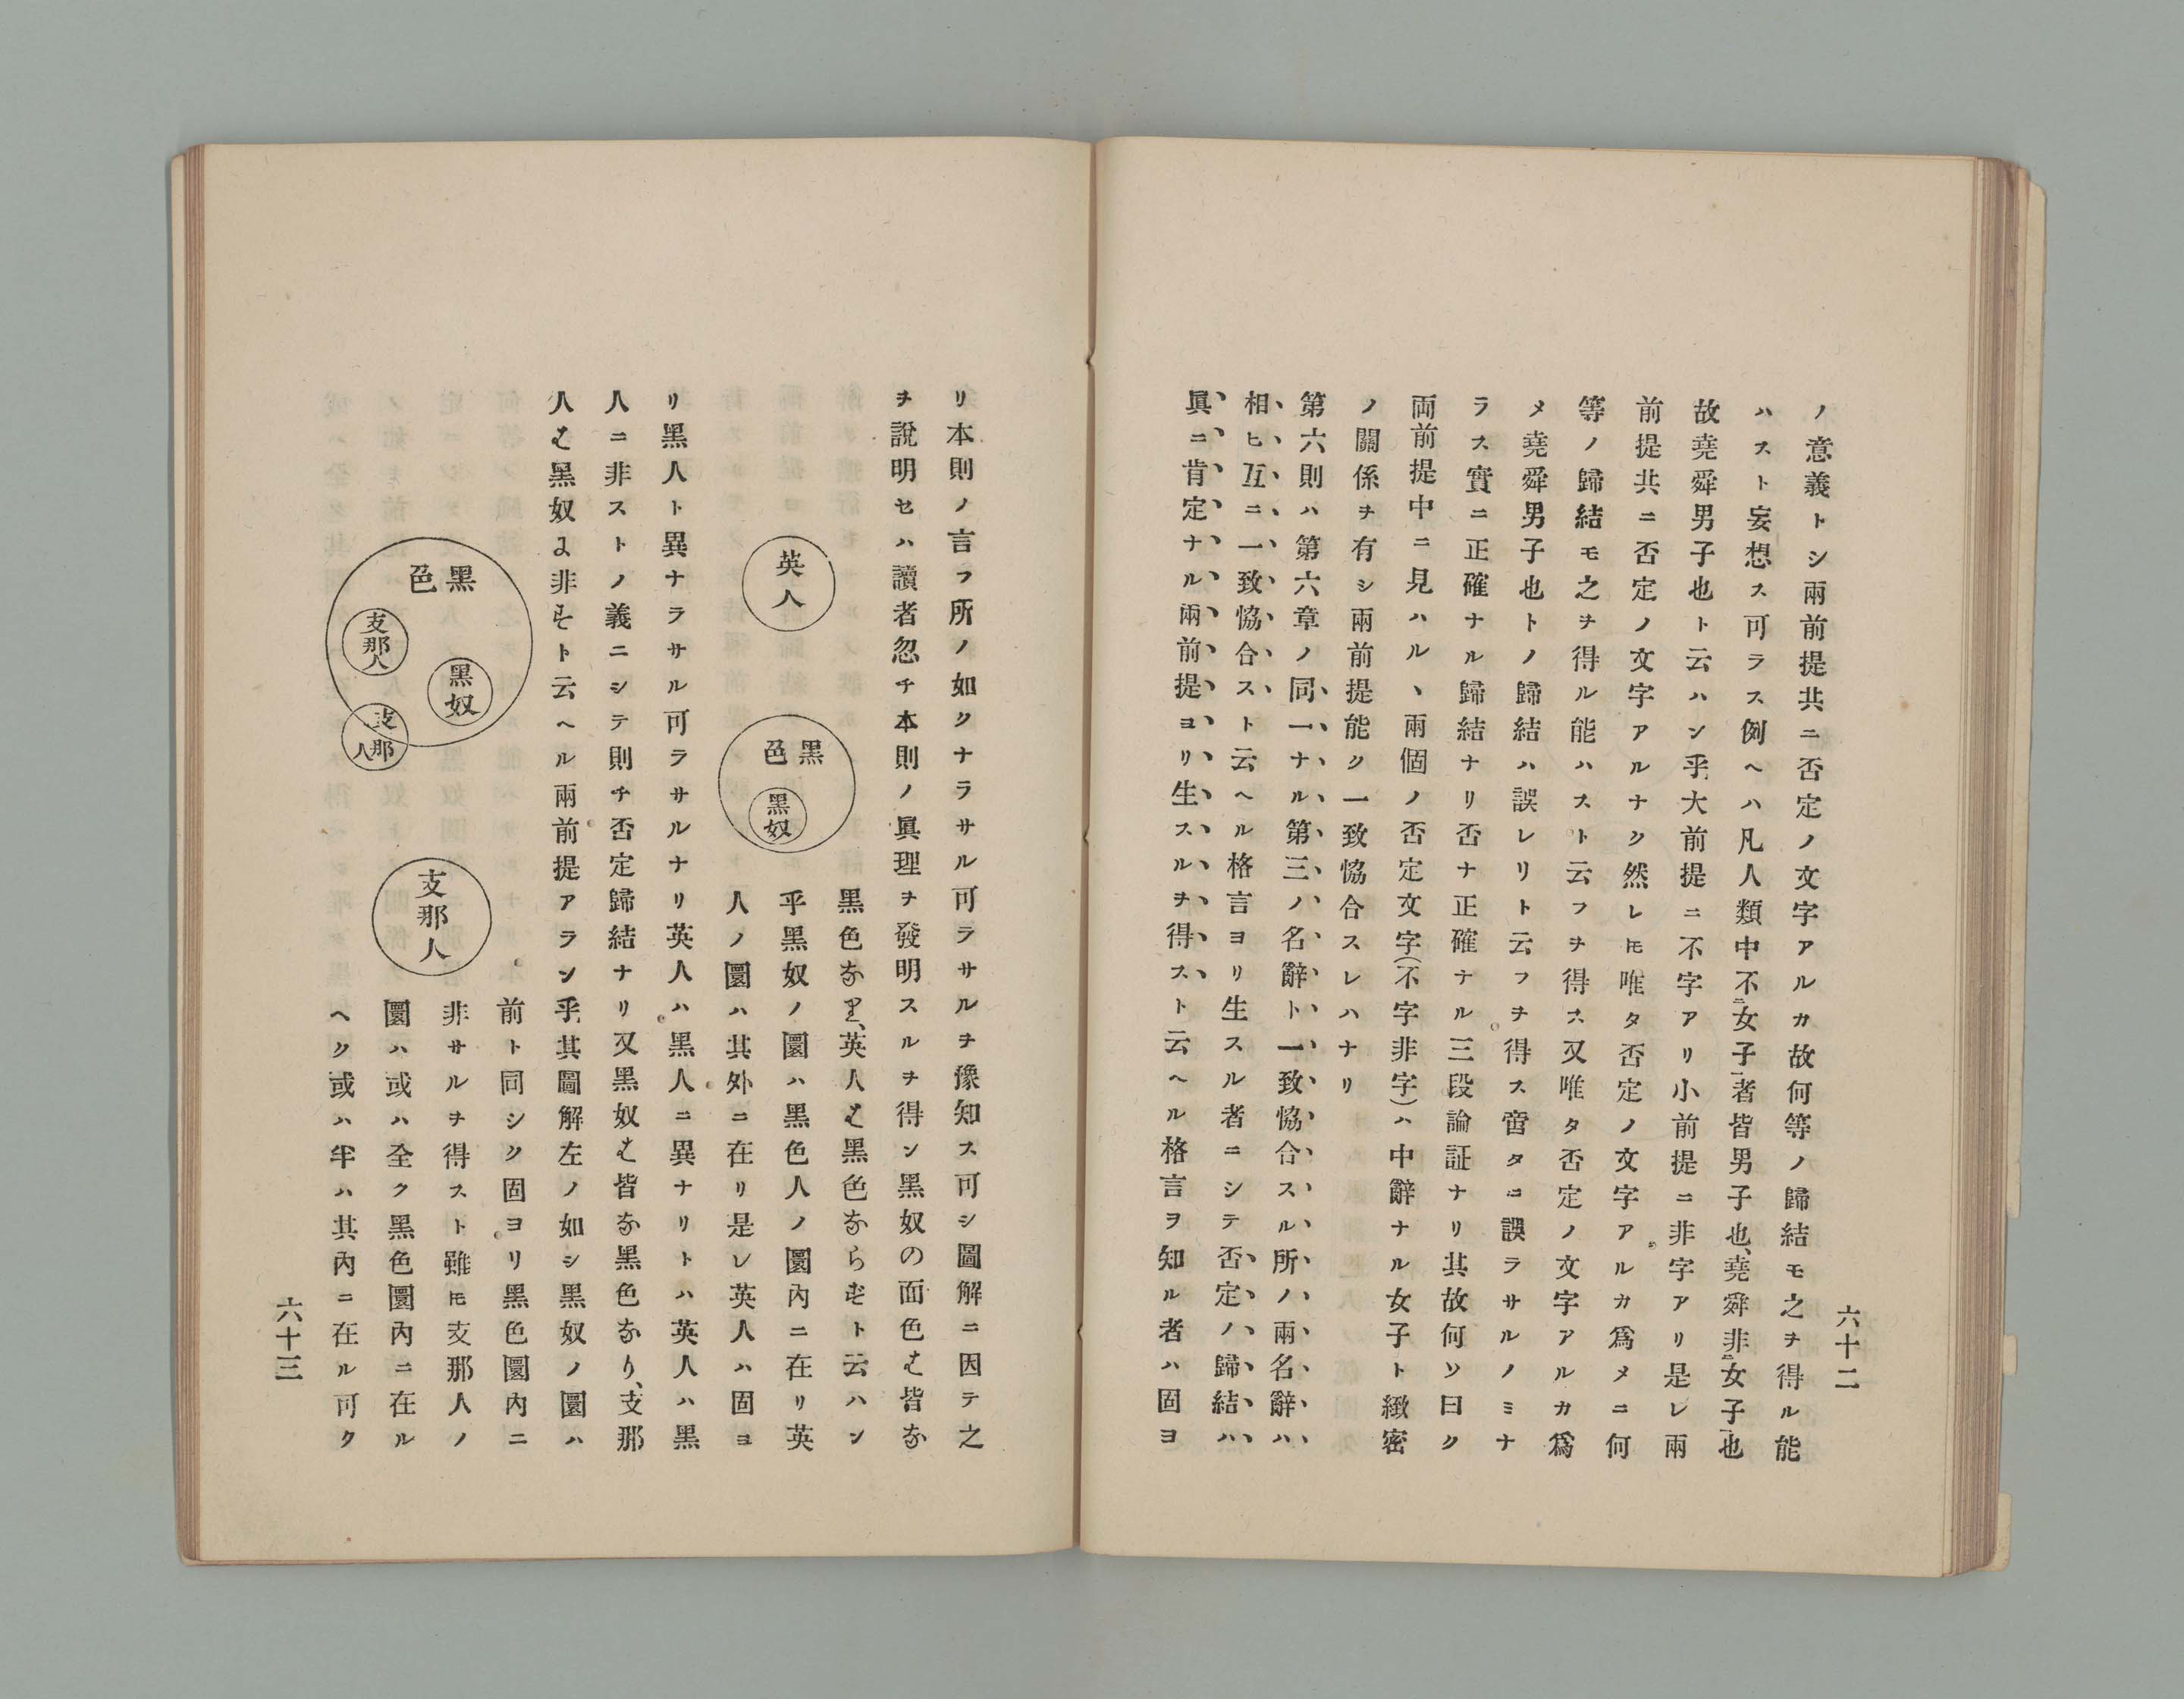 六十二
ノ意義トシ兩前提共ニ否定ノ文字アルカ故何等ノ歸結モ之ヲ得ル能
ハスト妄想ス可ラス例ヘハ凡人類中不女子者皆男子也、堯舜非女子也
故堯舜男子也ト云ハン乎大前提ニ不字アリ小前提ニ非字アリ是レ兩
前提共ニ否定ノ文字アルナク然レ𪜈唯タ否定ノ文字アルカ爲メニ何
等ノ歸結モ之ヲ得ル能ハスト云フヲ得ス又唯タ否定ノ文字アルカ爲
メ堯舜男子也トノ歸結ハ誤レリト云フヲ得ス啻タニ誤ラサルノミナ
ラス實ニ正確ナル歸結ナリ否ナ正確ナル三段論証ナリ其故何ソ曰ク
両前提中ニ見ハルヽ兩個ノ否定文字(不字非字)ハ中辭ナル女子ト緻密
ノ關係ヲ有シ兩前提能ク一致恊合スレハナリ
第六則ハ第六章ノ同一ナル第三ノ名辭ト一致恊合スル所ノ兩名辭ハ
相ヒ互ニ一致恊合スト云ヘル格言ヨリ生スル者ニシテ否定ノ歸結ハ
眞ニ肯定ナル兩前提ヨリ生スルヲ得スト云ヘル格言ヲ知ル者ハ固ヨ
リ本則ノ言フ所ノ如クナラサル可ラサルヲ豫知ス可シ圖解ニ因テ之
ヲ說明セハ讀者忽チ本則ノ眞理ヲ發明スルヲ得ン黑奴の面色は皆な
黑色なり、英人は黑色ならずト云ハン
乎黑奴ノ圜ハ黑色人ノ圜內ニ在リ英
人ノ圜ハ其外ニ在リ是レ英人ハ固ヨ
英人
黑色
黑奴
リ黑人ト異ナラサル可ラサルナリ英人ハ黑人ニ異ナリトハ英人ハ黑
人ニ非ストノ義ニシテ則チ否定歸結ナリ又黑奴は皆な黑色なり、支那
人は黑奴よ非ずト云ヘル兩前提アラン乎其圖解左ノ如シ黑奴ノ圜ハ
前ト同シク固ヨリ黑色圜內ニ
非サルヲ得スト雖𪜈支那人ノ
圜ハ或ハ全ク黑色圜內ニ在ル
ヘク或ハ半ハ其內ニ在ル可ク
黑色
支那人
黑奴
支那人
支那人
六十三